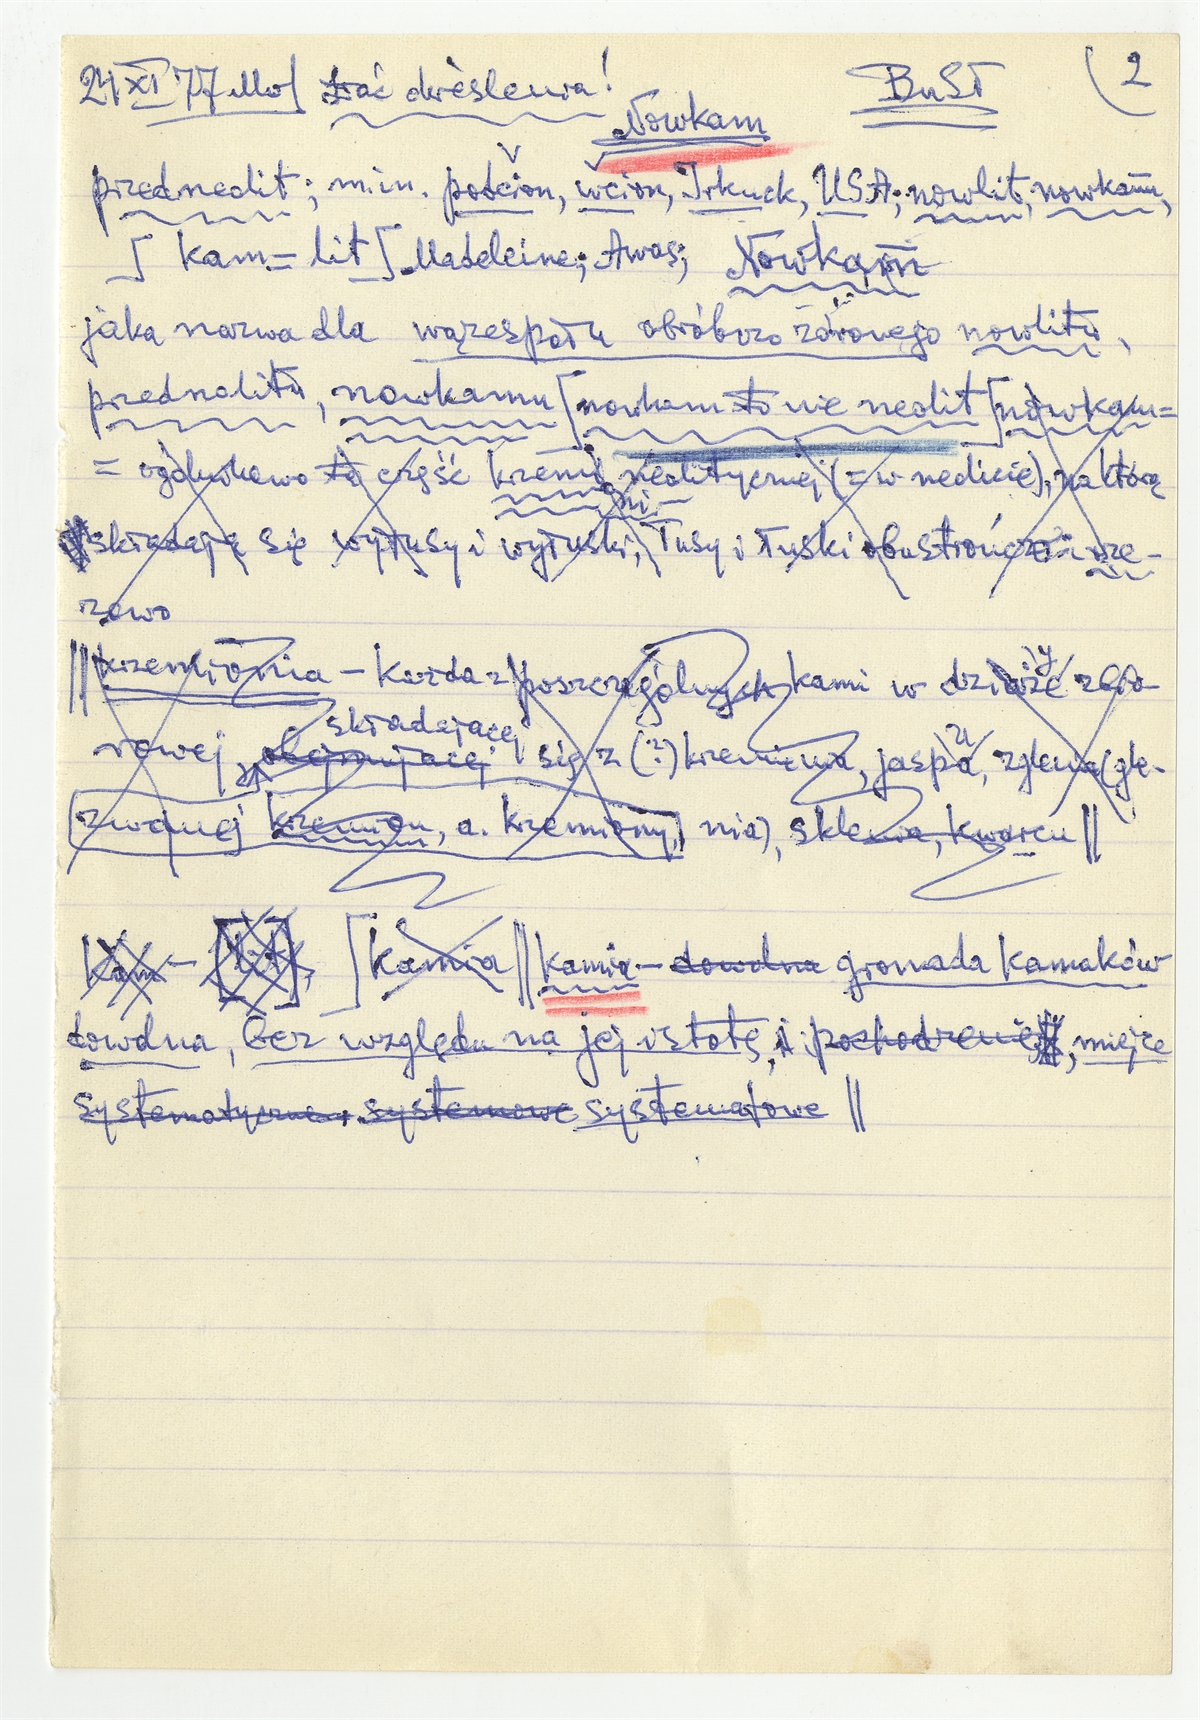 24 XI 77 dać określenia! BuSt 2
Nowkam
przedneolit; min. poścjon, wcion, Irkuck, USA; nowlit, nowkam,
[kam = lit] Madeleine; Nowkam
jaka nazwa dla wązespołu obróbczo zdrowego nowlitu,
przednolitu, nowkamu [nowkam to nie neolit] nowkam =
= ogólnikowo tę część krzemi neolitycznej (= w neolicie), na którą
składają się wyłusy i wyłuski, łusy i łuski obustrończa i rze-
zowo
|| krzemionia – każda z poszczególnych kami w dzioży zbio-
rowej, obejmującej składającej się z (?) krzemienia, jaspu, zglenia (gle-
zwanej krzemion, a. krzemiony,) nia), sklenia, kwarcu ||
kam – [lit], [kamia || kamia – dowolna gromada kamaków
dowolna, bez względu na jej istotę, i pochodzenie, miejsce
systematyczne, systemowe systematowe ||